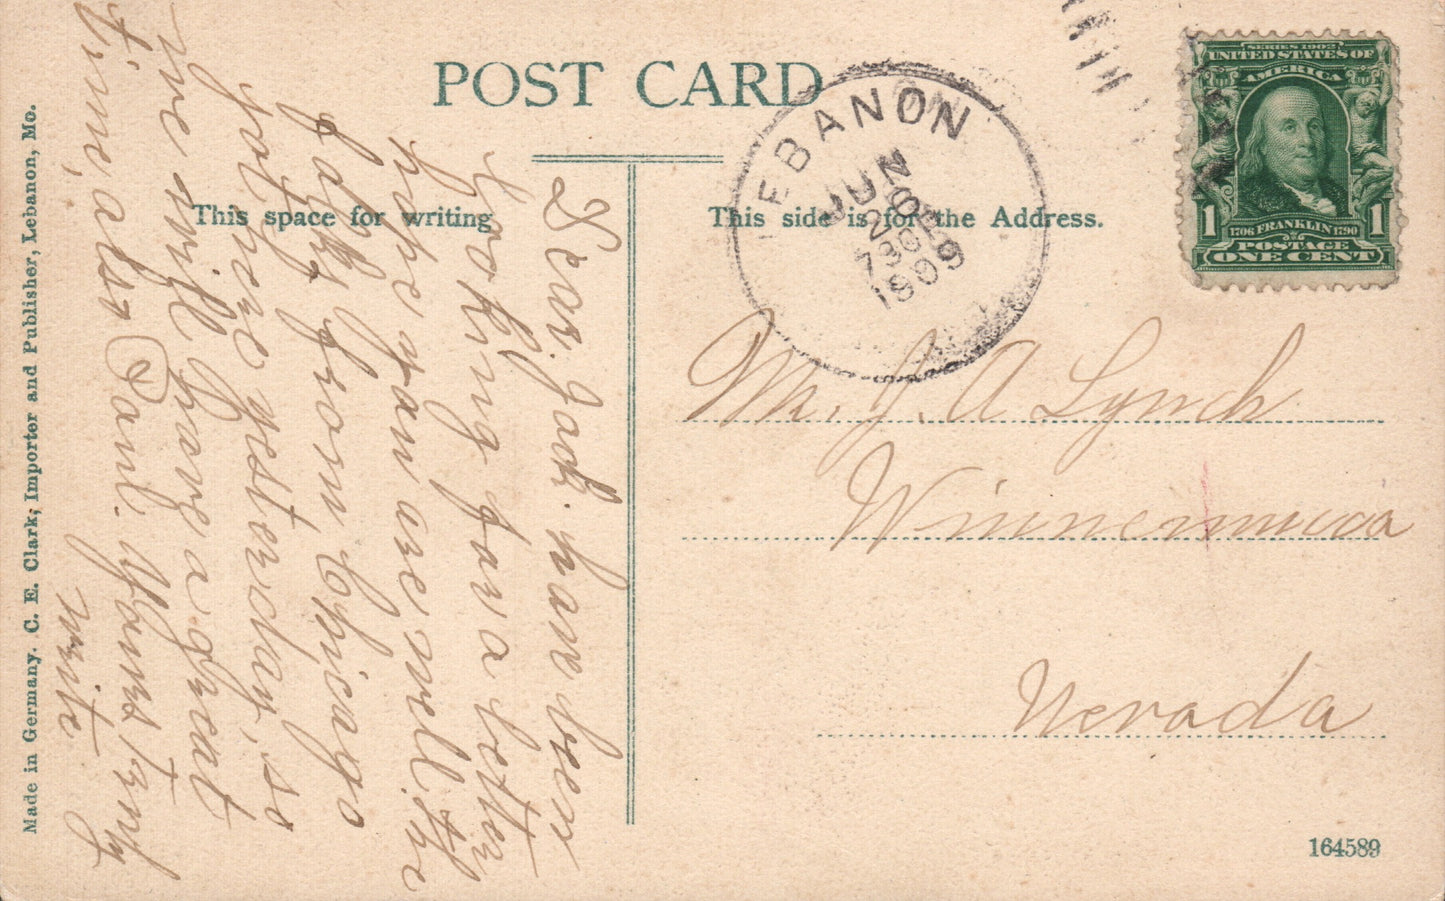 POST CARD
This space for writing
This side is for the Address.
LEBANON
JUN
2
730
1909
SERIES 1902
UNITED STATES OF
AMERICA
1706 FRANKLIN 1790
POSTAGE
1 1
ONE CENT
Mr. J. A Lynch
Winnemucca
Nevada
164589
Dear. Jack. have been
looking for a letter
hope you are well. the
folks from Chicago
got here yesterday, so
we will have a great
time, also Paul. Yours Truly
write.
Made in Germany. C. E. Clark; Importer and Publisher, Lebanon, Mo.